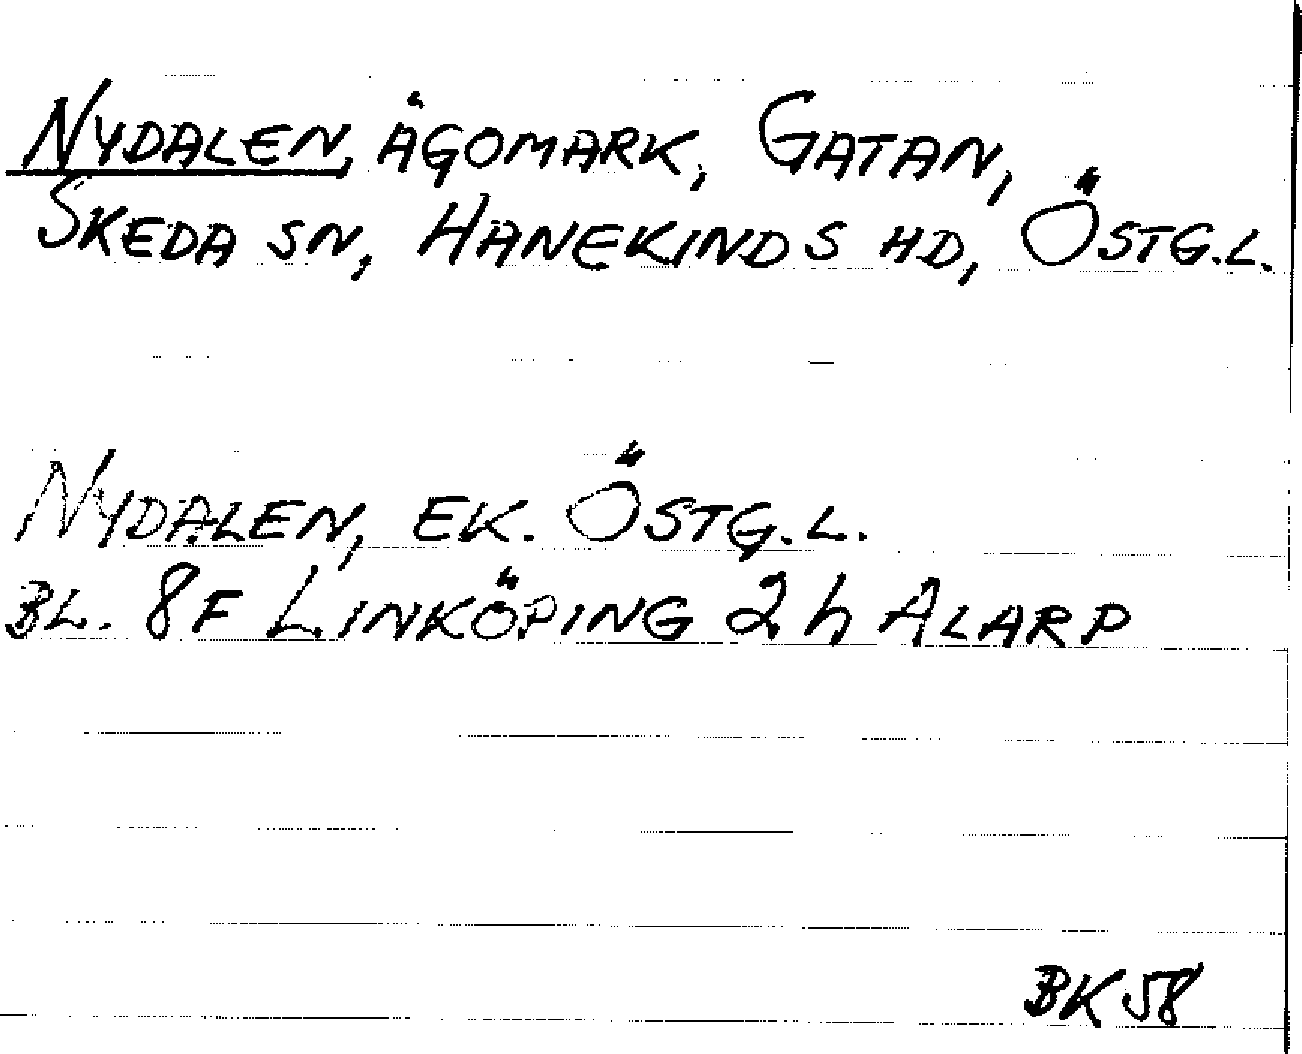 NYDALEN, ÄGOMARK, GATAN,
SKEDA SN, HANEKINDS HD, ÖSTG.L.
NYDALEN, EK. ÖSTG.L.
BL. 8F LINKÖPING 2h ALARP
BK 58